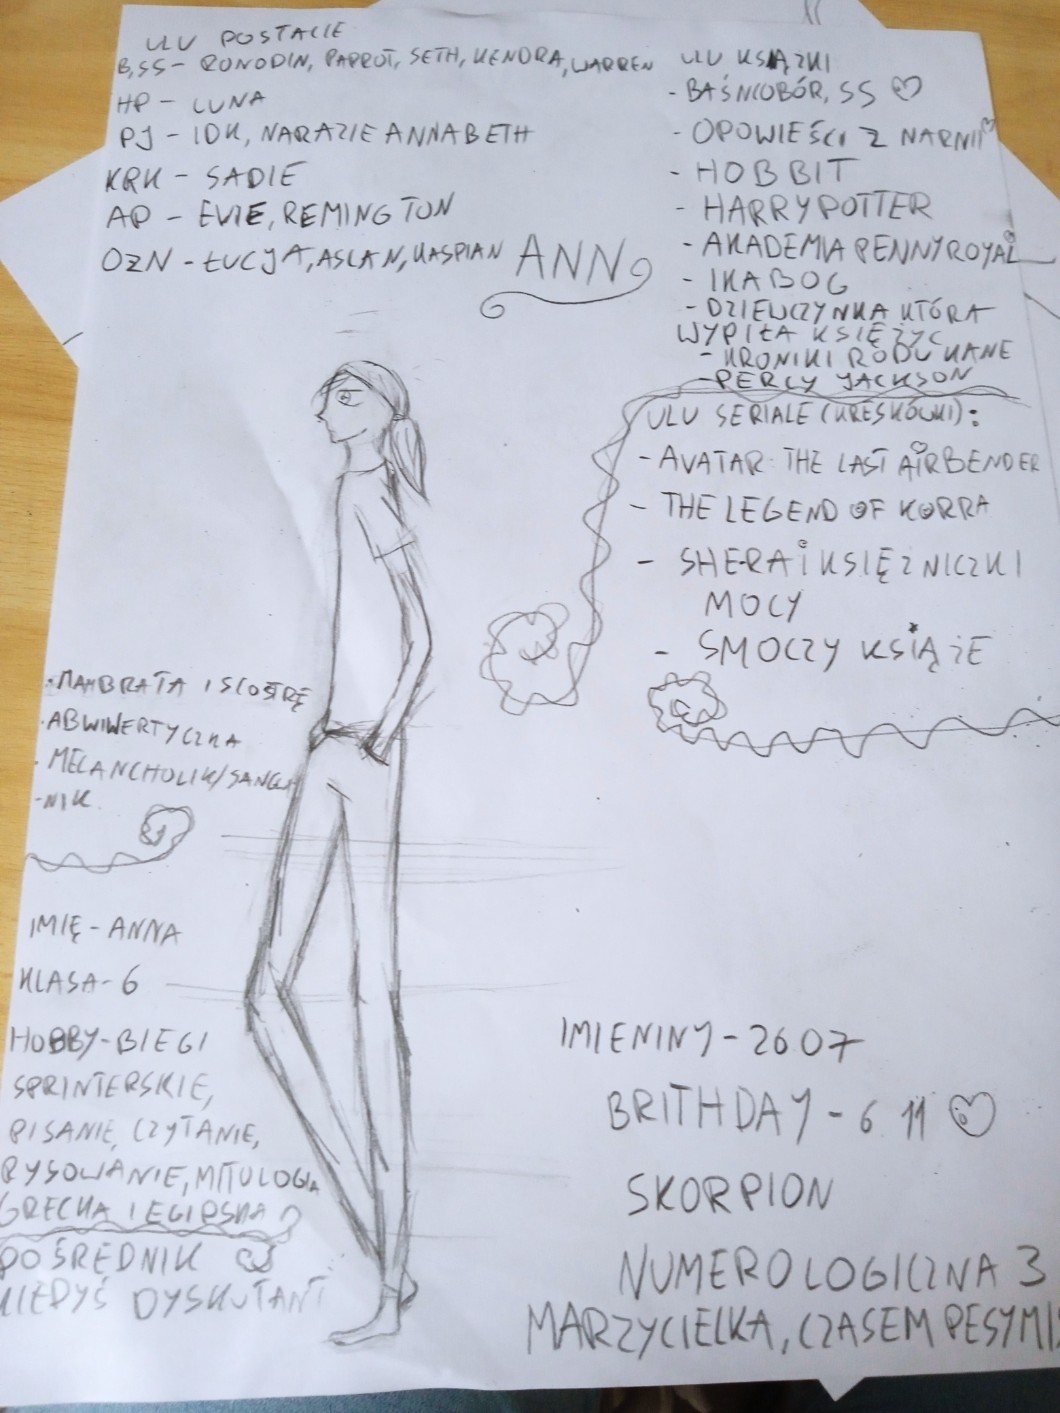 ULU POSTACIE
B,SS - RONODIN, PARROT, SETH, KENDRA, WARREN
HP - LUNA
PJ - IDK, NARAZIE ANNABETH
KRK - SADIE
AP - EVIE, REMINGTON
OZN - ŁUCJA, ASLAN, KASPIAN
ANN
ULU KSIĄŻKI
- BAŚNIOBÓR, SS
- OPOWIEŚCI Z NARNII
- HOBBIT
- HARRY POTTER
- AKADEMIA PENNYROYAL
- IKABOG
- DZIEWCZYNKA KTÓRA
WYPIŁA KSIĘŻYC
- KRONIKI RODU KANE
- PERCY JACKSON
ULU SERIALE (KRESKÓWKI):
- AVATAR: THE LAST AIRBENDER
- THE LEGEND OF KORRA
- SHE-RA I KSIĘŻNICZKI
MOCY
- SMOCZY KSIĄŻE
• MAM BRATA I SIOSTRĘ
• ABWIWERTYCZKA
• MELANCHOLIK/SANGW
-NIK
IMIĘ - ANNA
KLASA - 6
HOBBY - BIEGI
SPRINTERSKIE,
PISANIE, CZYTANIE,
RYSOWANIE, MITOLOGIA
GRECKA I EGIPSKA
POŚREDNIK
KIEDYŚ DYSKUTANT
IMIENINY - 26.07
BRITHDAY - 6.11
SKORPION
NUMEROLOGICZNA 3
MARZYCIELKA, CZASEM PESYMIS